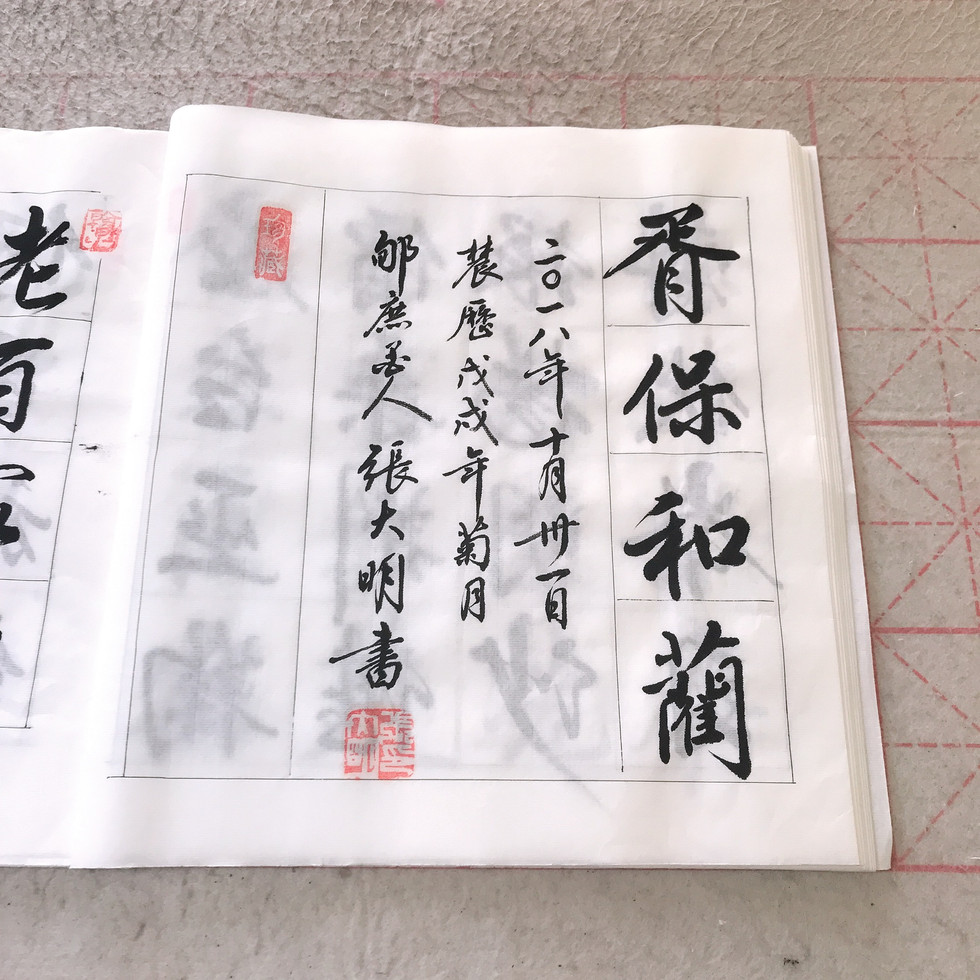 胥保和藺
二〇一八年十月卅一日
農歷戊戌年菊月
人張大明書
珍藏
老百